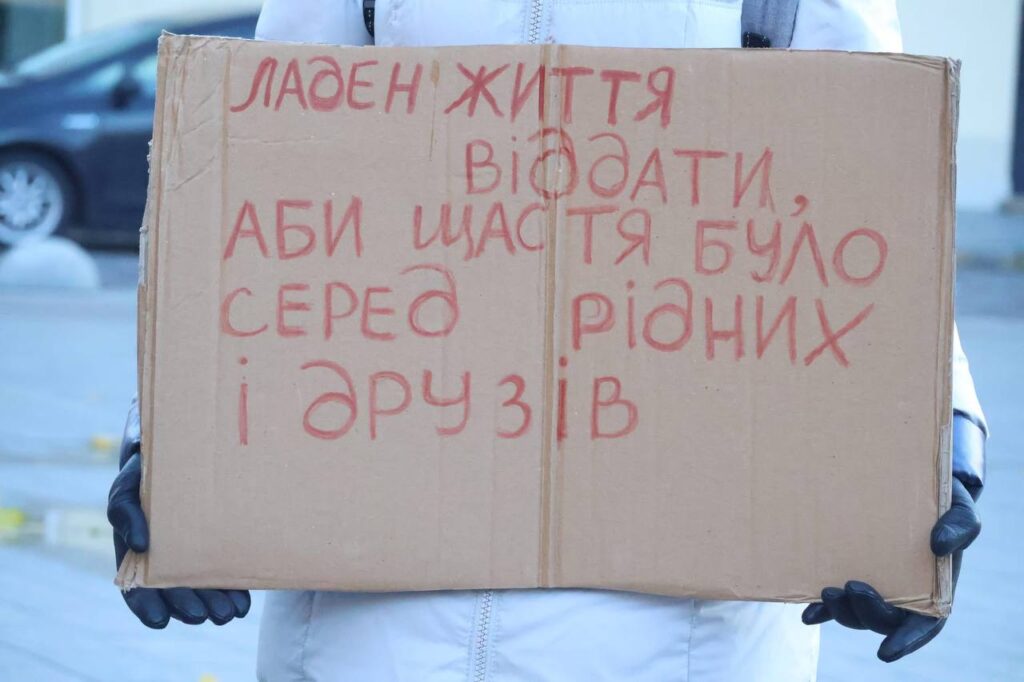 ЛАДЕН ЖИТТЯ
ВІДДАТИ,
АБИ ЩАСТЯ БУЛО
СЕРЕД РІДНИХ
І ДРУЗІВ